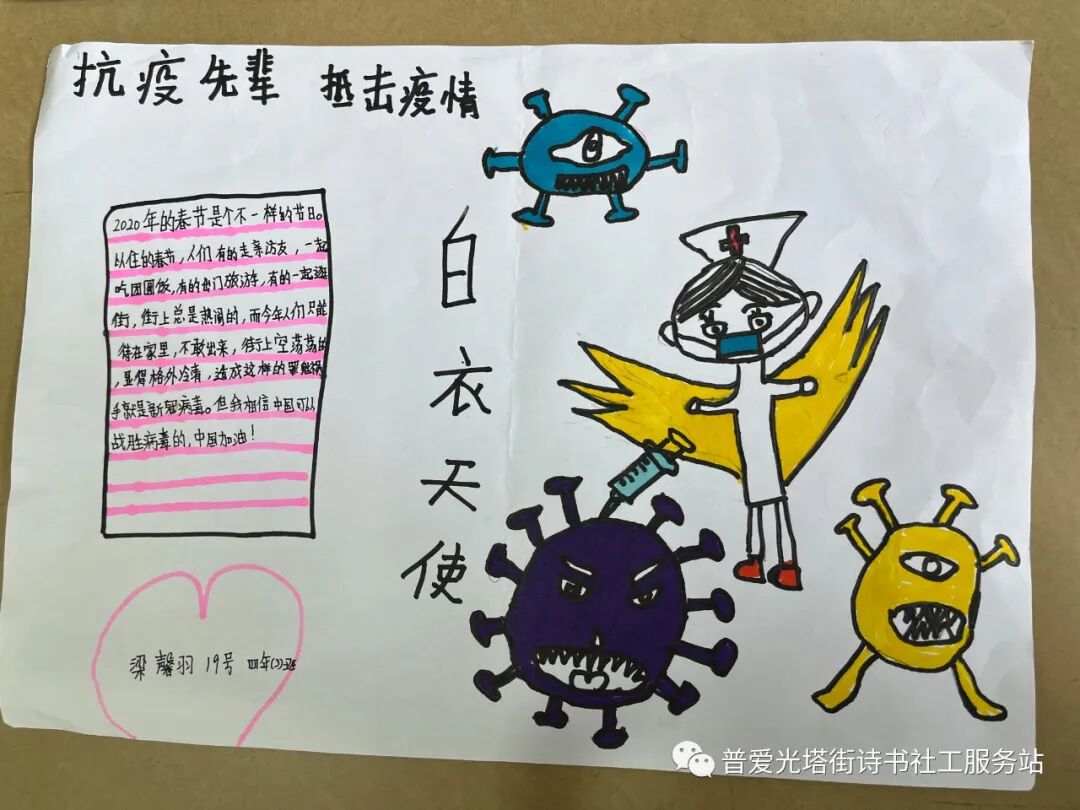 抗疫先辈 抵击疫情
2020年的春节是个不一样的节日。
以住的春节,人们有的走亲访友,一起
吃团圆饭,有的出门旅游,有的一起逛
街,街上总是热闹的,而今年人们只能
待在家里,不敢出来,街上空荡荡的
,显得格外冷清,造成这样的罪魁祸
手就是新冠病毒。但我相信中国可以
战胜病毒的,中国加油!
白衣天使
梁馨羽 19号 四年(2)班
普爱光塔街诗书社工服务站